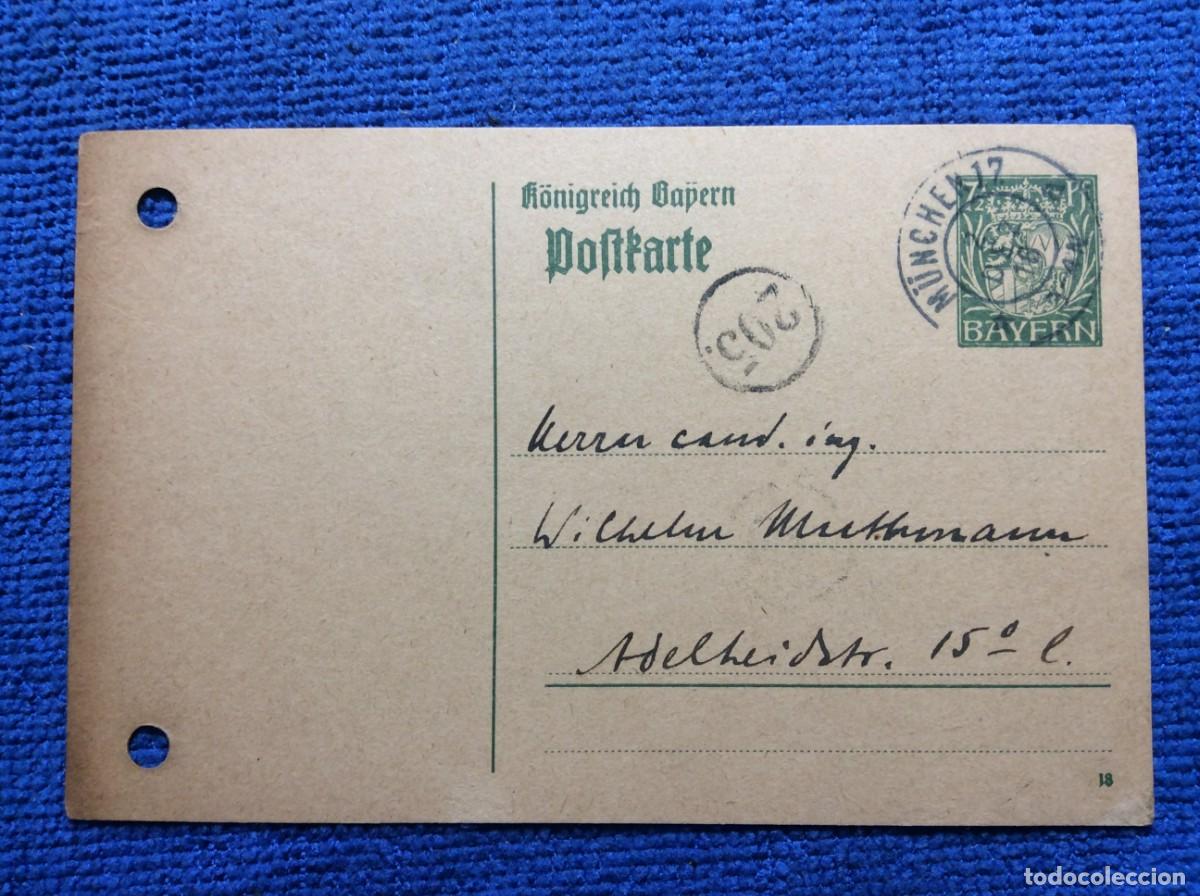 Königreich Bayern
Postkarte
MÜNCHEN 17
7
BAYERN
205.
Herrn cand. ing.
Wilhelm Muthmann
Adelheidstr. 15⁰ l.
18
todocoleccion